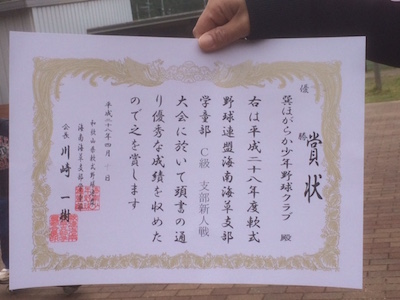 賞状
優勝
巽ほがらか少年野球クラブ 殿
右は平成二十八年度軟式
野球連盟海南海草支部
学童部 C級 支部新人戦
大会に於いて頭書の通
り優秀な成績を収めた
ので之を賞します
平成二十八年四月 日
和歌山県軟式野球連盟
海南海草支部学童部
会長 川崎 一樹